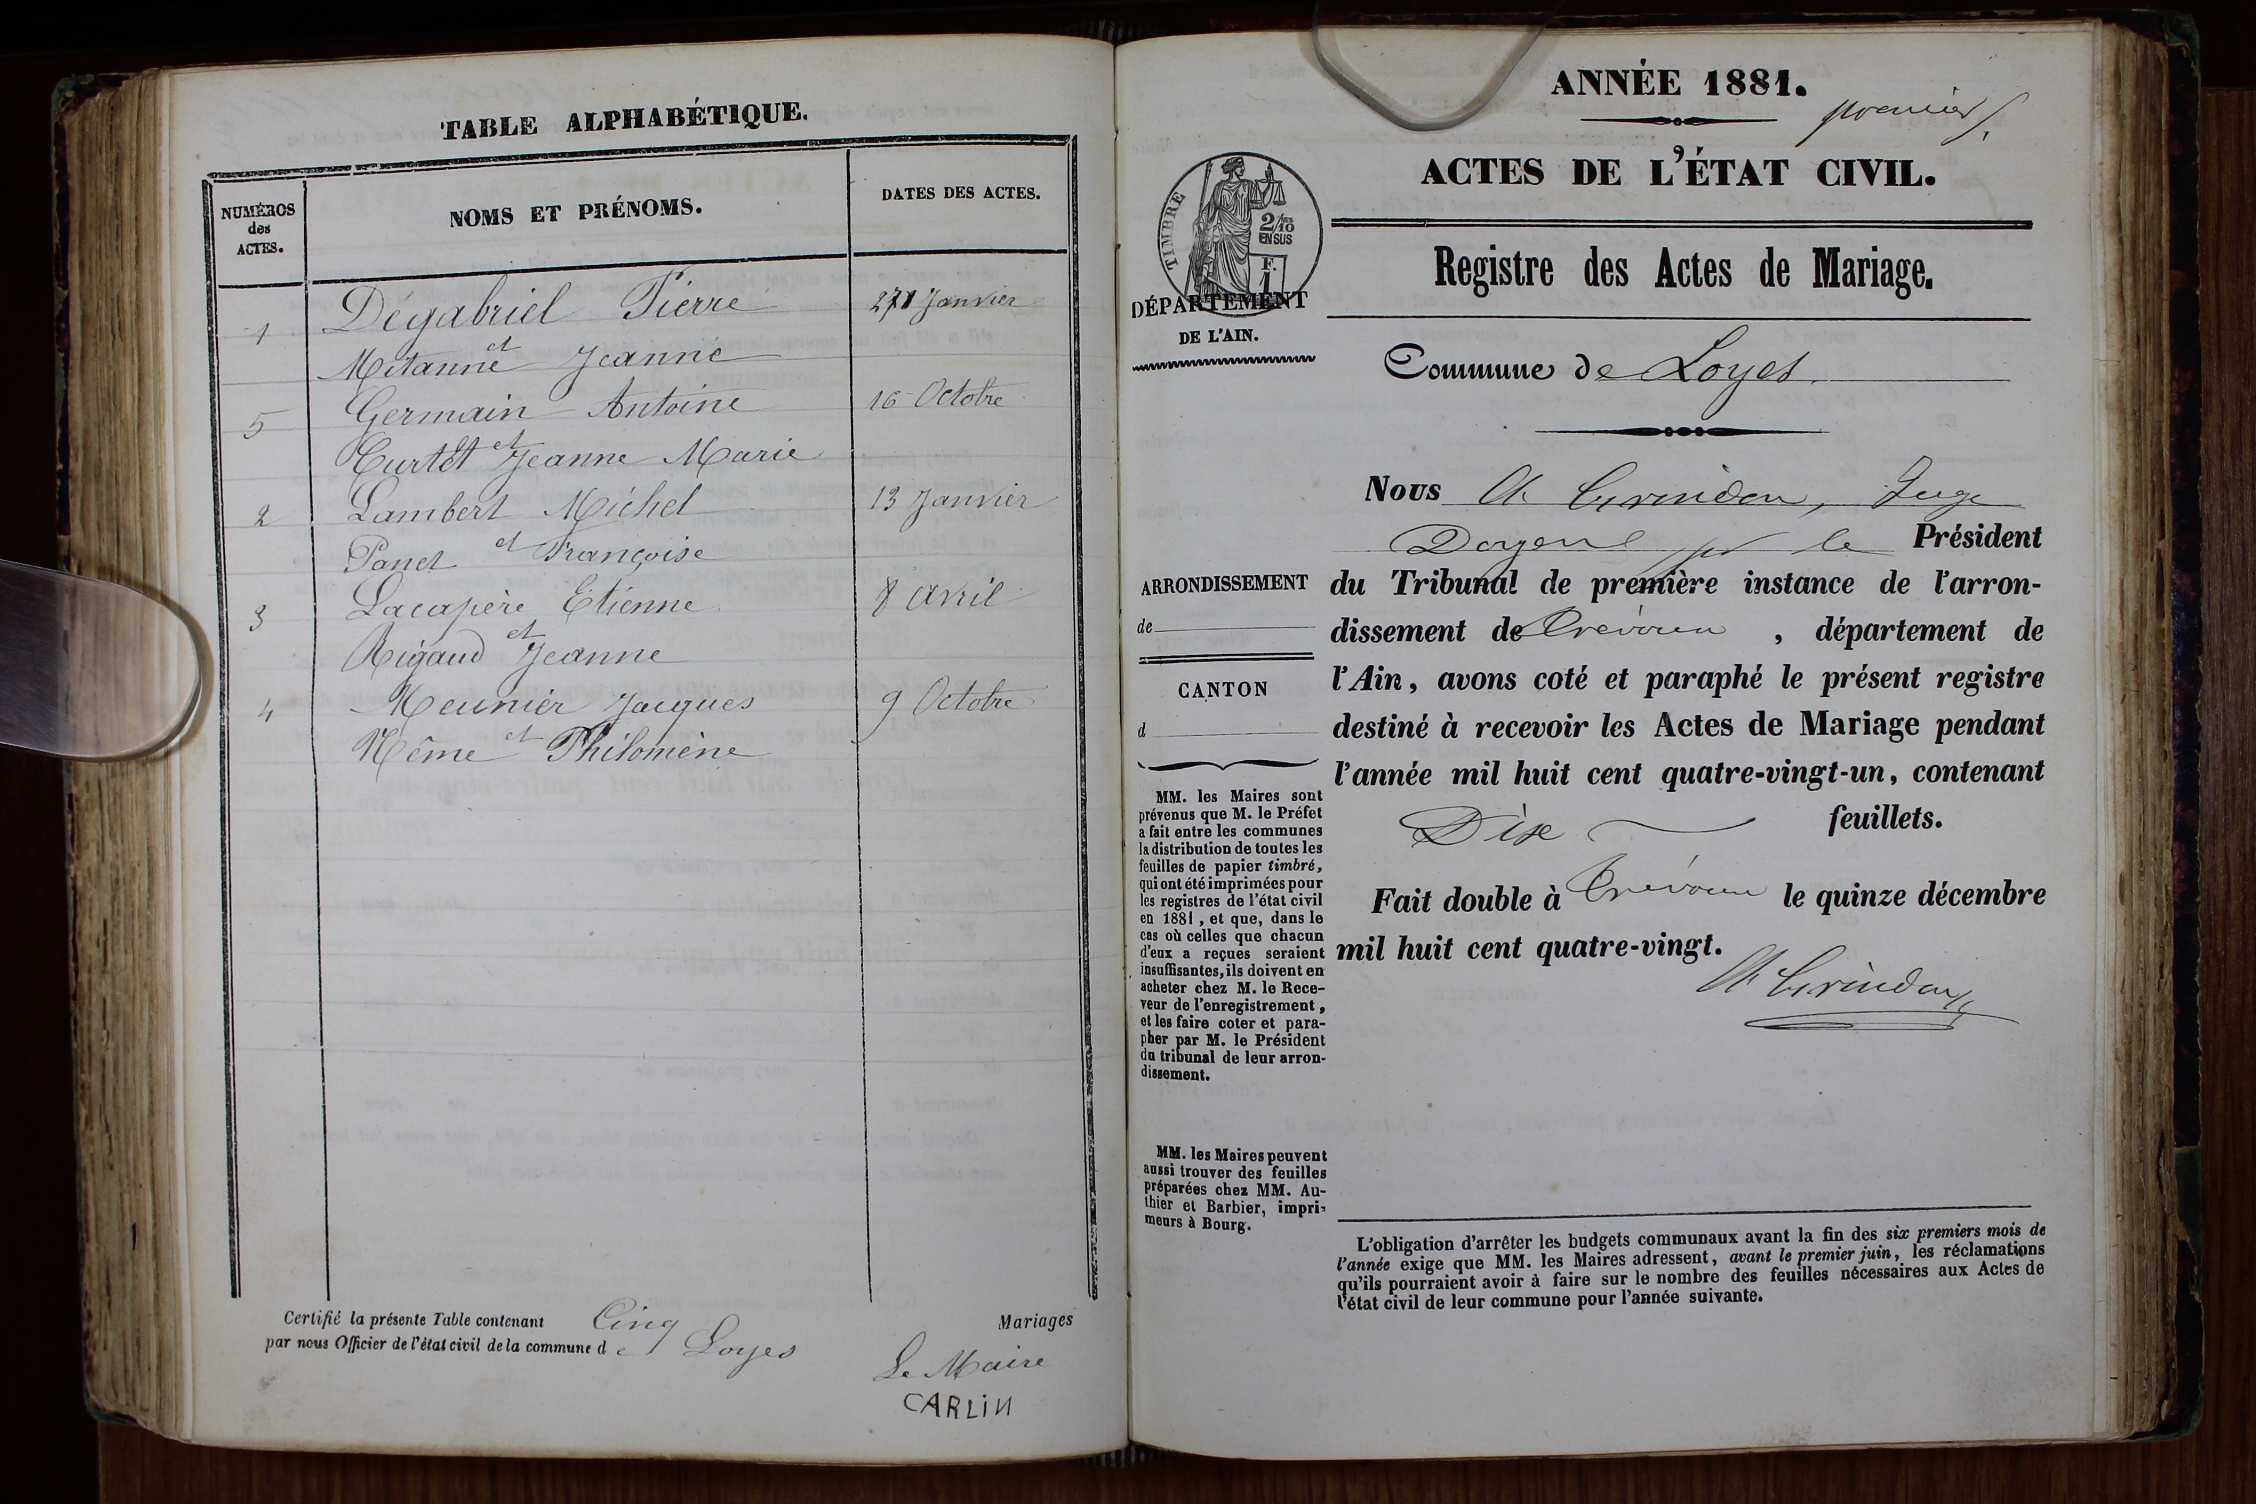 TABLE ALPHABÉTIQUE.
NUMÉROS
des
ACTES.
NOMS ET PRÉNOMS.
DATES DES ACTES.
1 Dégabriel Pierre Janvier
et
Mitanne Jeanne
5 Germain Antoine 16 Octobre
et
Curtet Jeanne Marie
2 Lambert Michel 13 Janvier
et
Panet Françoise
3 Lacapère Etienne 8 avril
et
Rigaud Jeanne
4 Meunier Jacques 9 Octobre
et
Même Philomène
Certifié la présente Table contenant Cinq Mariages
par nous Officier de l'état civil de la commune de Loyes
Le Maire
CARLIN
ANNÉE 1881.
premier
ACTES DE L'ÉTAT CIVIL.
TIMBRE
2/10
EN SUS
F.
1
DÉPARTEMENT
DE L'AIN.
Registre des Actes de Mariage.
Commune de Loyes.
Nous Juge
Doyen pr le Président
du Tribunal de première instance de l'arron-
dissement de Trévoux, département de
l'Ain, avons coté et paraphé le présent registre
destiné à recevoir les Actes de Mariage pendant
l'année mil huit cent quatre-vingt-un, contenant
Dix feuillets.
Fait double à Trévoux le quinze décembre
mil huit cent quatre-vingt.
ARRONDISSEMENT
de
CANTON
d
MM. les Maires sont
prévenus que M. le Préfet
a fait entre les communes
la distribution de toutes les
feuilles de papier timbré,
qui ont été imprimées pour
les registres de l'état civil
en 1881, et que, dans le
cas où celles que chacun
d'eux a reçues seraient
insuffisantes, ils doivent en
acheter chez M. le Rece-
veur de l'enregistrement,
et les faire coter et para-
pher par M. le Président
du tribunal de leur arron-
dissement.
MM. les Maires peuvent
aussi trouver des feuilles
préparées chez MM. Au-
thier et Barbier, impri-
meurs à Bourg.
L'obligation d'arrêter les budgets communaux avant la fin des six premiers mois de
l'année exige que MM. les Maires adressent, avant le premier juin, les réclamations
qu'ils pourraient avoir à faire sur le nombre des feuilles nécessaires aux Actes de
l'état civil de leur commune pour l'année suivante.